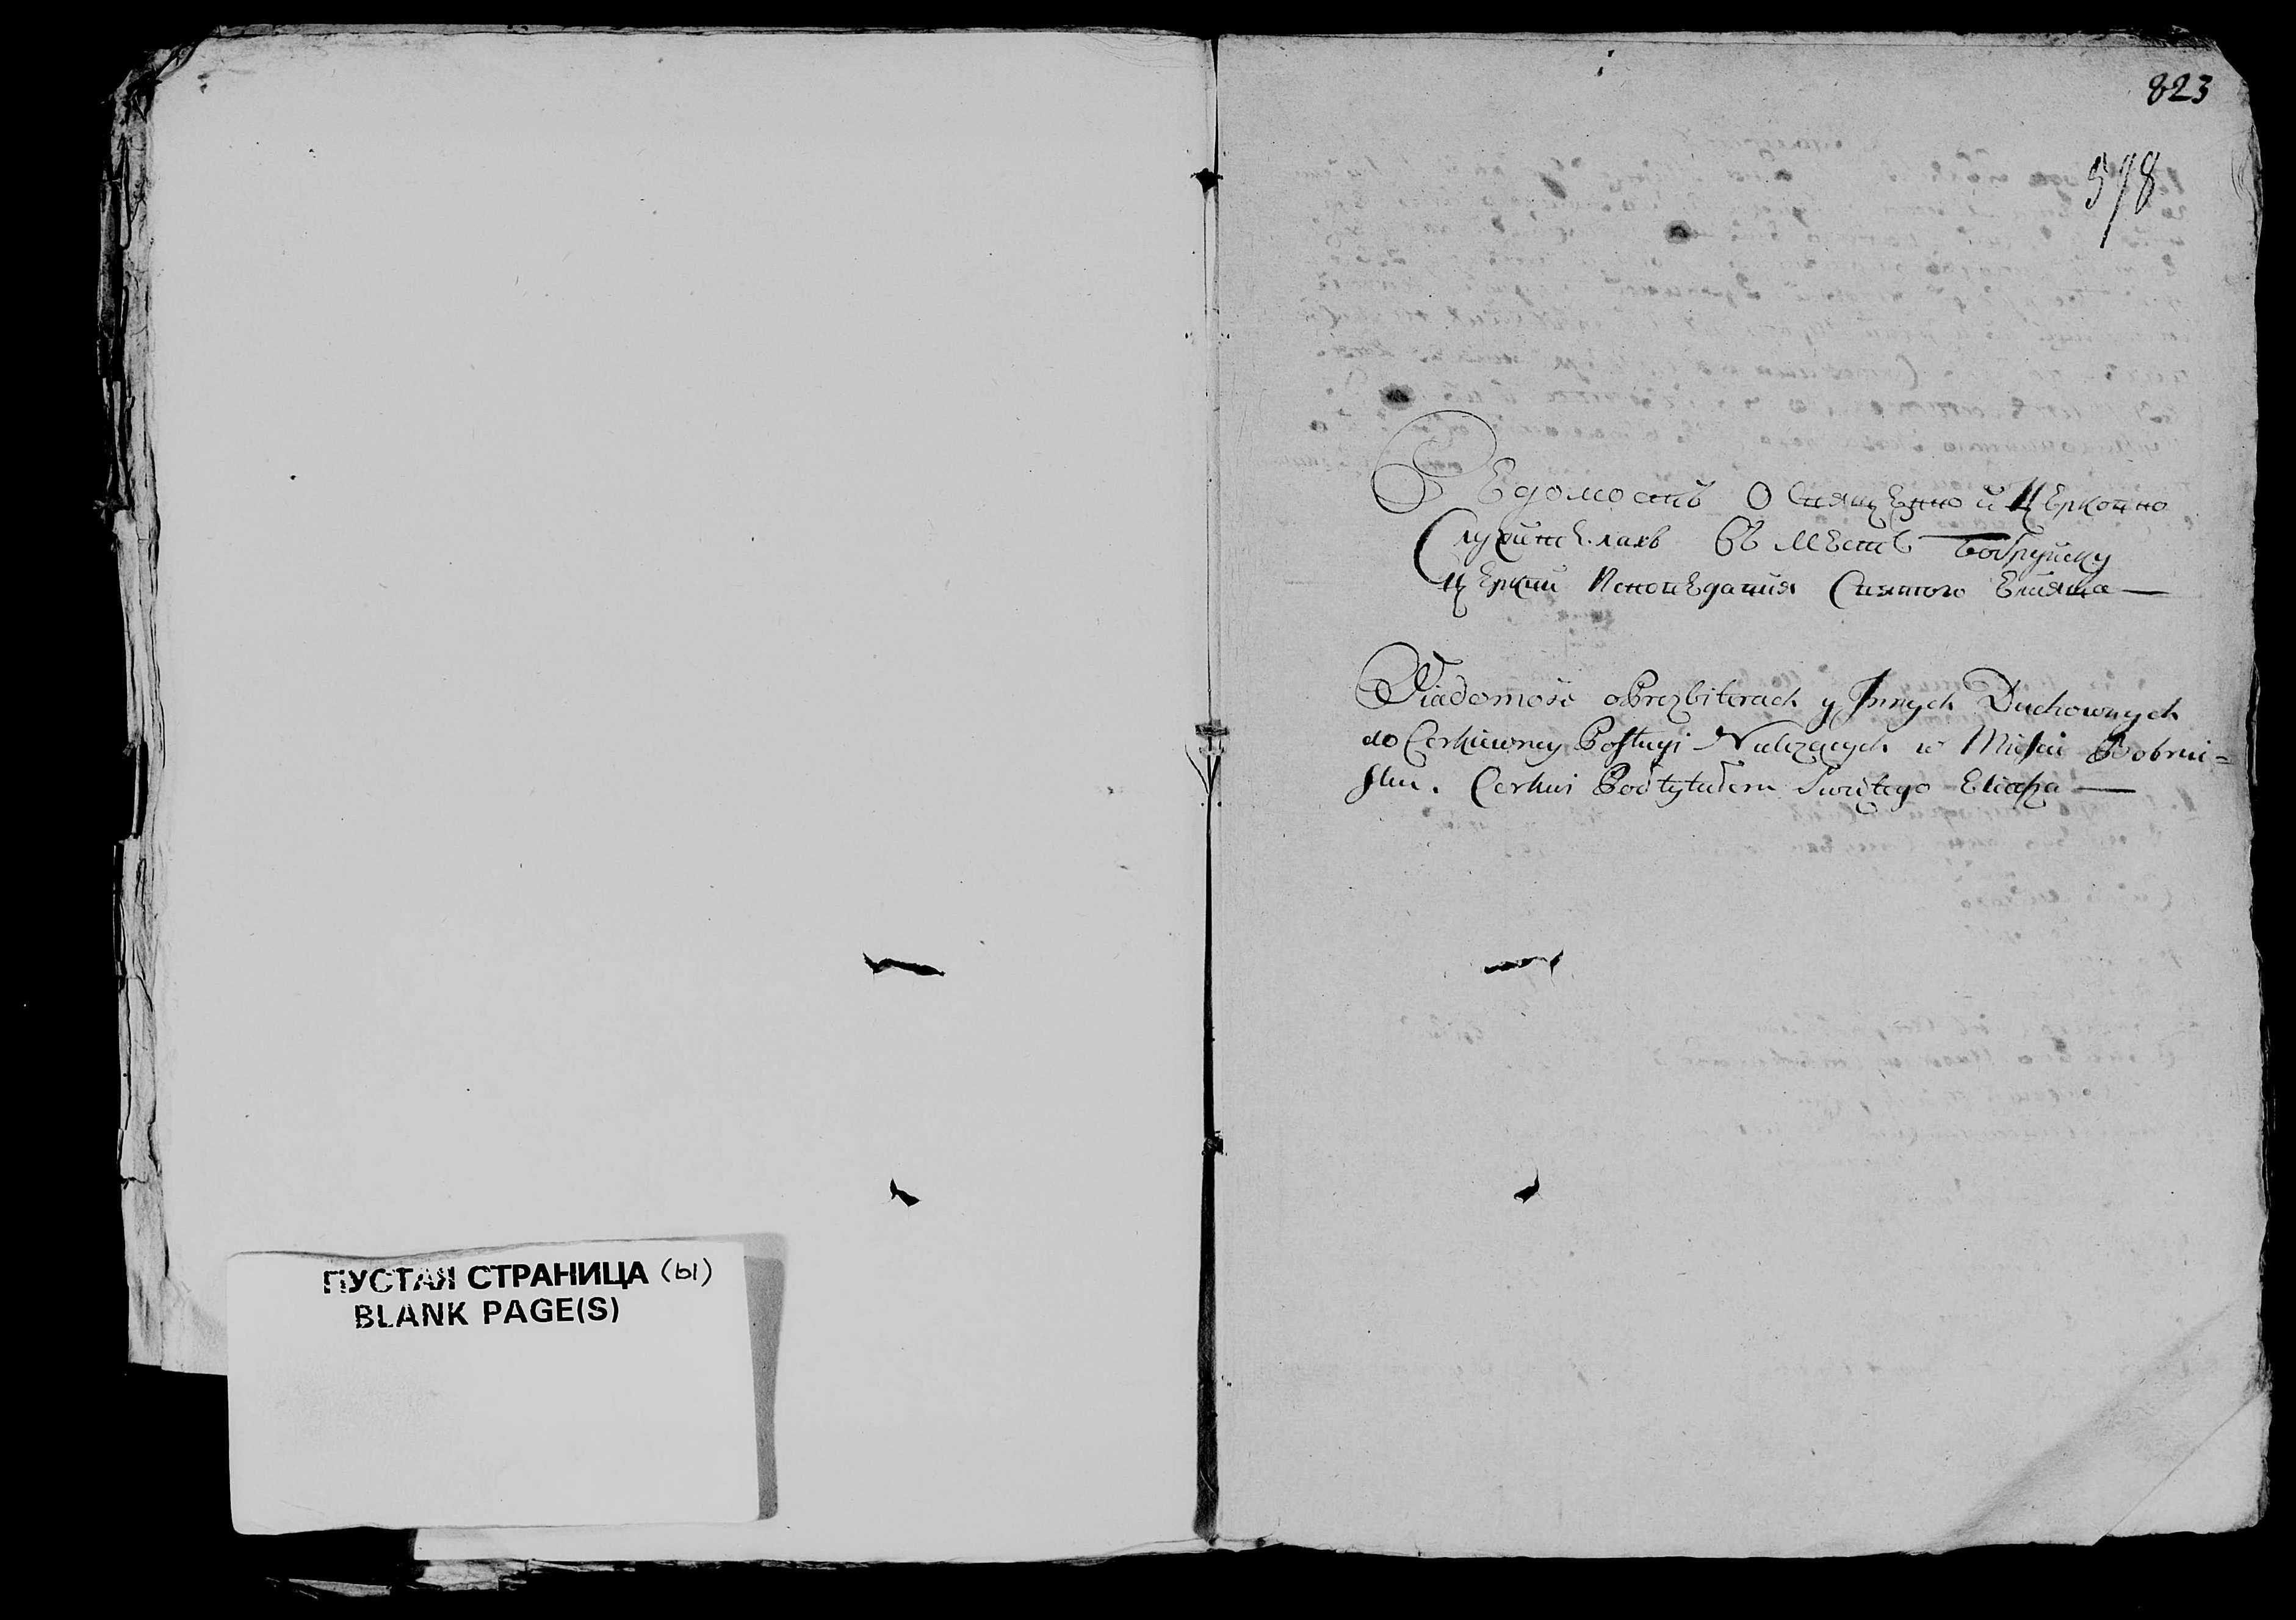 ПУСТАЯ СТРАНИЦА (Ы)
BLANK PAGE(S)
823
578
Ведомость О Священно и Церковно
Служителахъ Въ Месте Бобруйску
Церкви Исповедания Святого Елияша —
Wiadomość o Prezbiterach y Jnnych Duchownych
do Cerkiewney Posługi Należących w Mieście Bobrui=
sku. Cerkwi Pod tytułem Swiętego Eliasza —